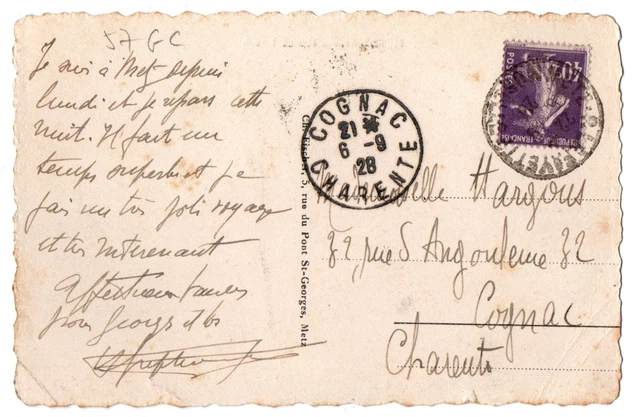 57 GC
Je suis à Metz depuis
lundi et je repars cette
nuit. Il fait un
temps superbe et je
fais un très joli voyage
et très intéressant
Affectueux
pour Georges et
COGNAC
21
6 - 9
28
CHARENTE
40
POSTES
LAFAYETTE
5, rue du Pont St-Georges, Metz
Mademoiselle Hargous
32, rue d'Angoulême 32
Cognac
Charente